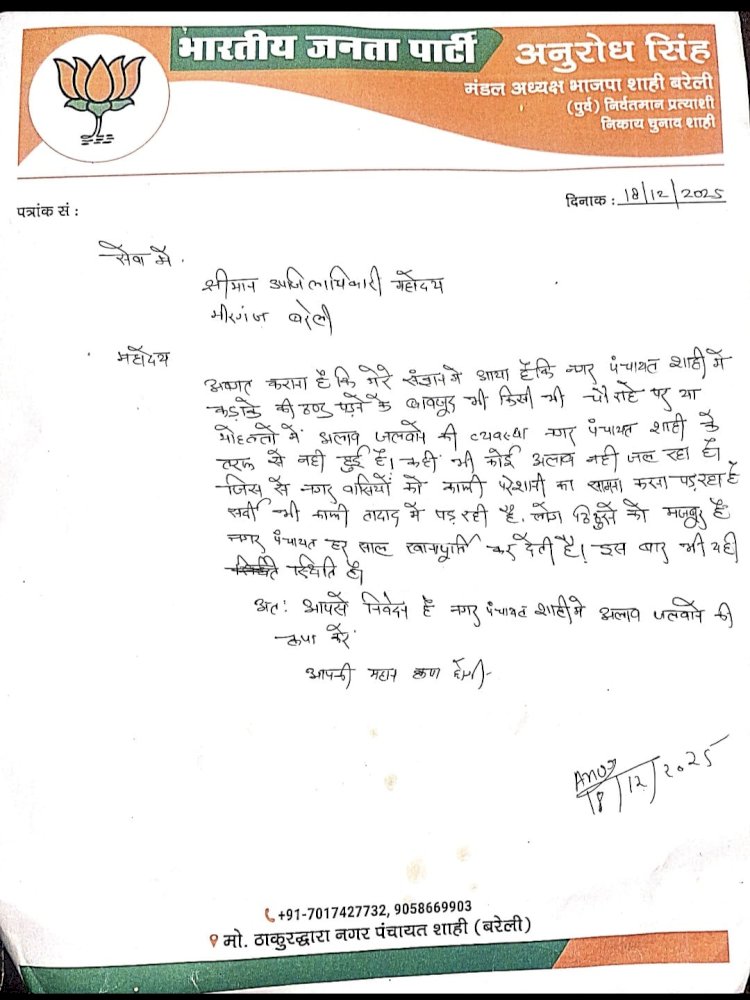 भारतीय जनता पार्टी
अनुरोध सिंह
मंडल अध्यक्ष भाजपा शाही बरेली
(पुर्व) निर्वतमान प्रत्याशी
निकाय चुनाव शाही
पत्रांक सं :
दिनाक : 18/12/2025
सेवा में .
श्रीमान उपजिलाधिकारी महोदय
मीरगंज बरेली
महोदय
अवगत कराना है कि मेरे संज्ञान में आया है कि नगर पंचायत शाही में
कड़ाके की ठण्ड पड़ने के बावजूद भी किसी भी चौराहे पर या
मोहल्लों में अलाव जलवाने की व्यवस्था नगर पंचायत शाही के
तरफ से नही हुई है। कहीं भी कोई अलाव नही जल रहा है।
जिस से नगर वासियों को काफी परेशानी का सामना करना पड़ रहा है
सर्दी भी काफी तादाद में पड़ रही है. लोग ठिठुरने को मजबूर है
नगर पंचायत हर साल खानापूर्ति कर देती है। इस बार भी यही
स्थिति है।
अतः आपसे निवेदन है नगर पंचायत शाही में अलाव जलवाने की
कृपा करें
आपकी महान कृपा होगी-
18/12/2025
+91-7017427732, 9058669903
मो. ठाकुरद्वारा नगर पंचायत शाही (बरेली)